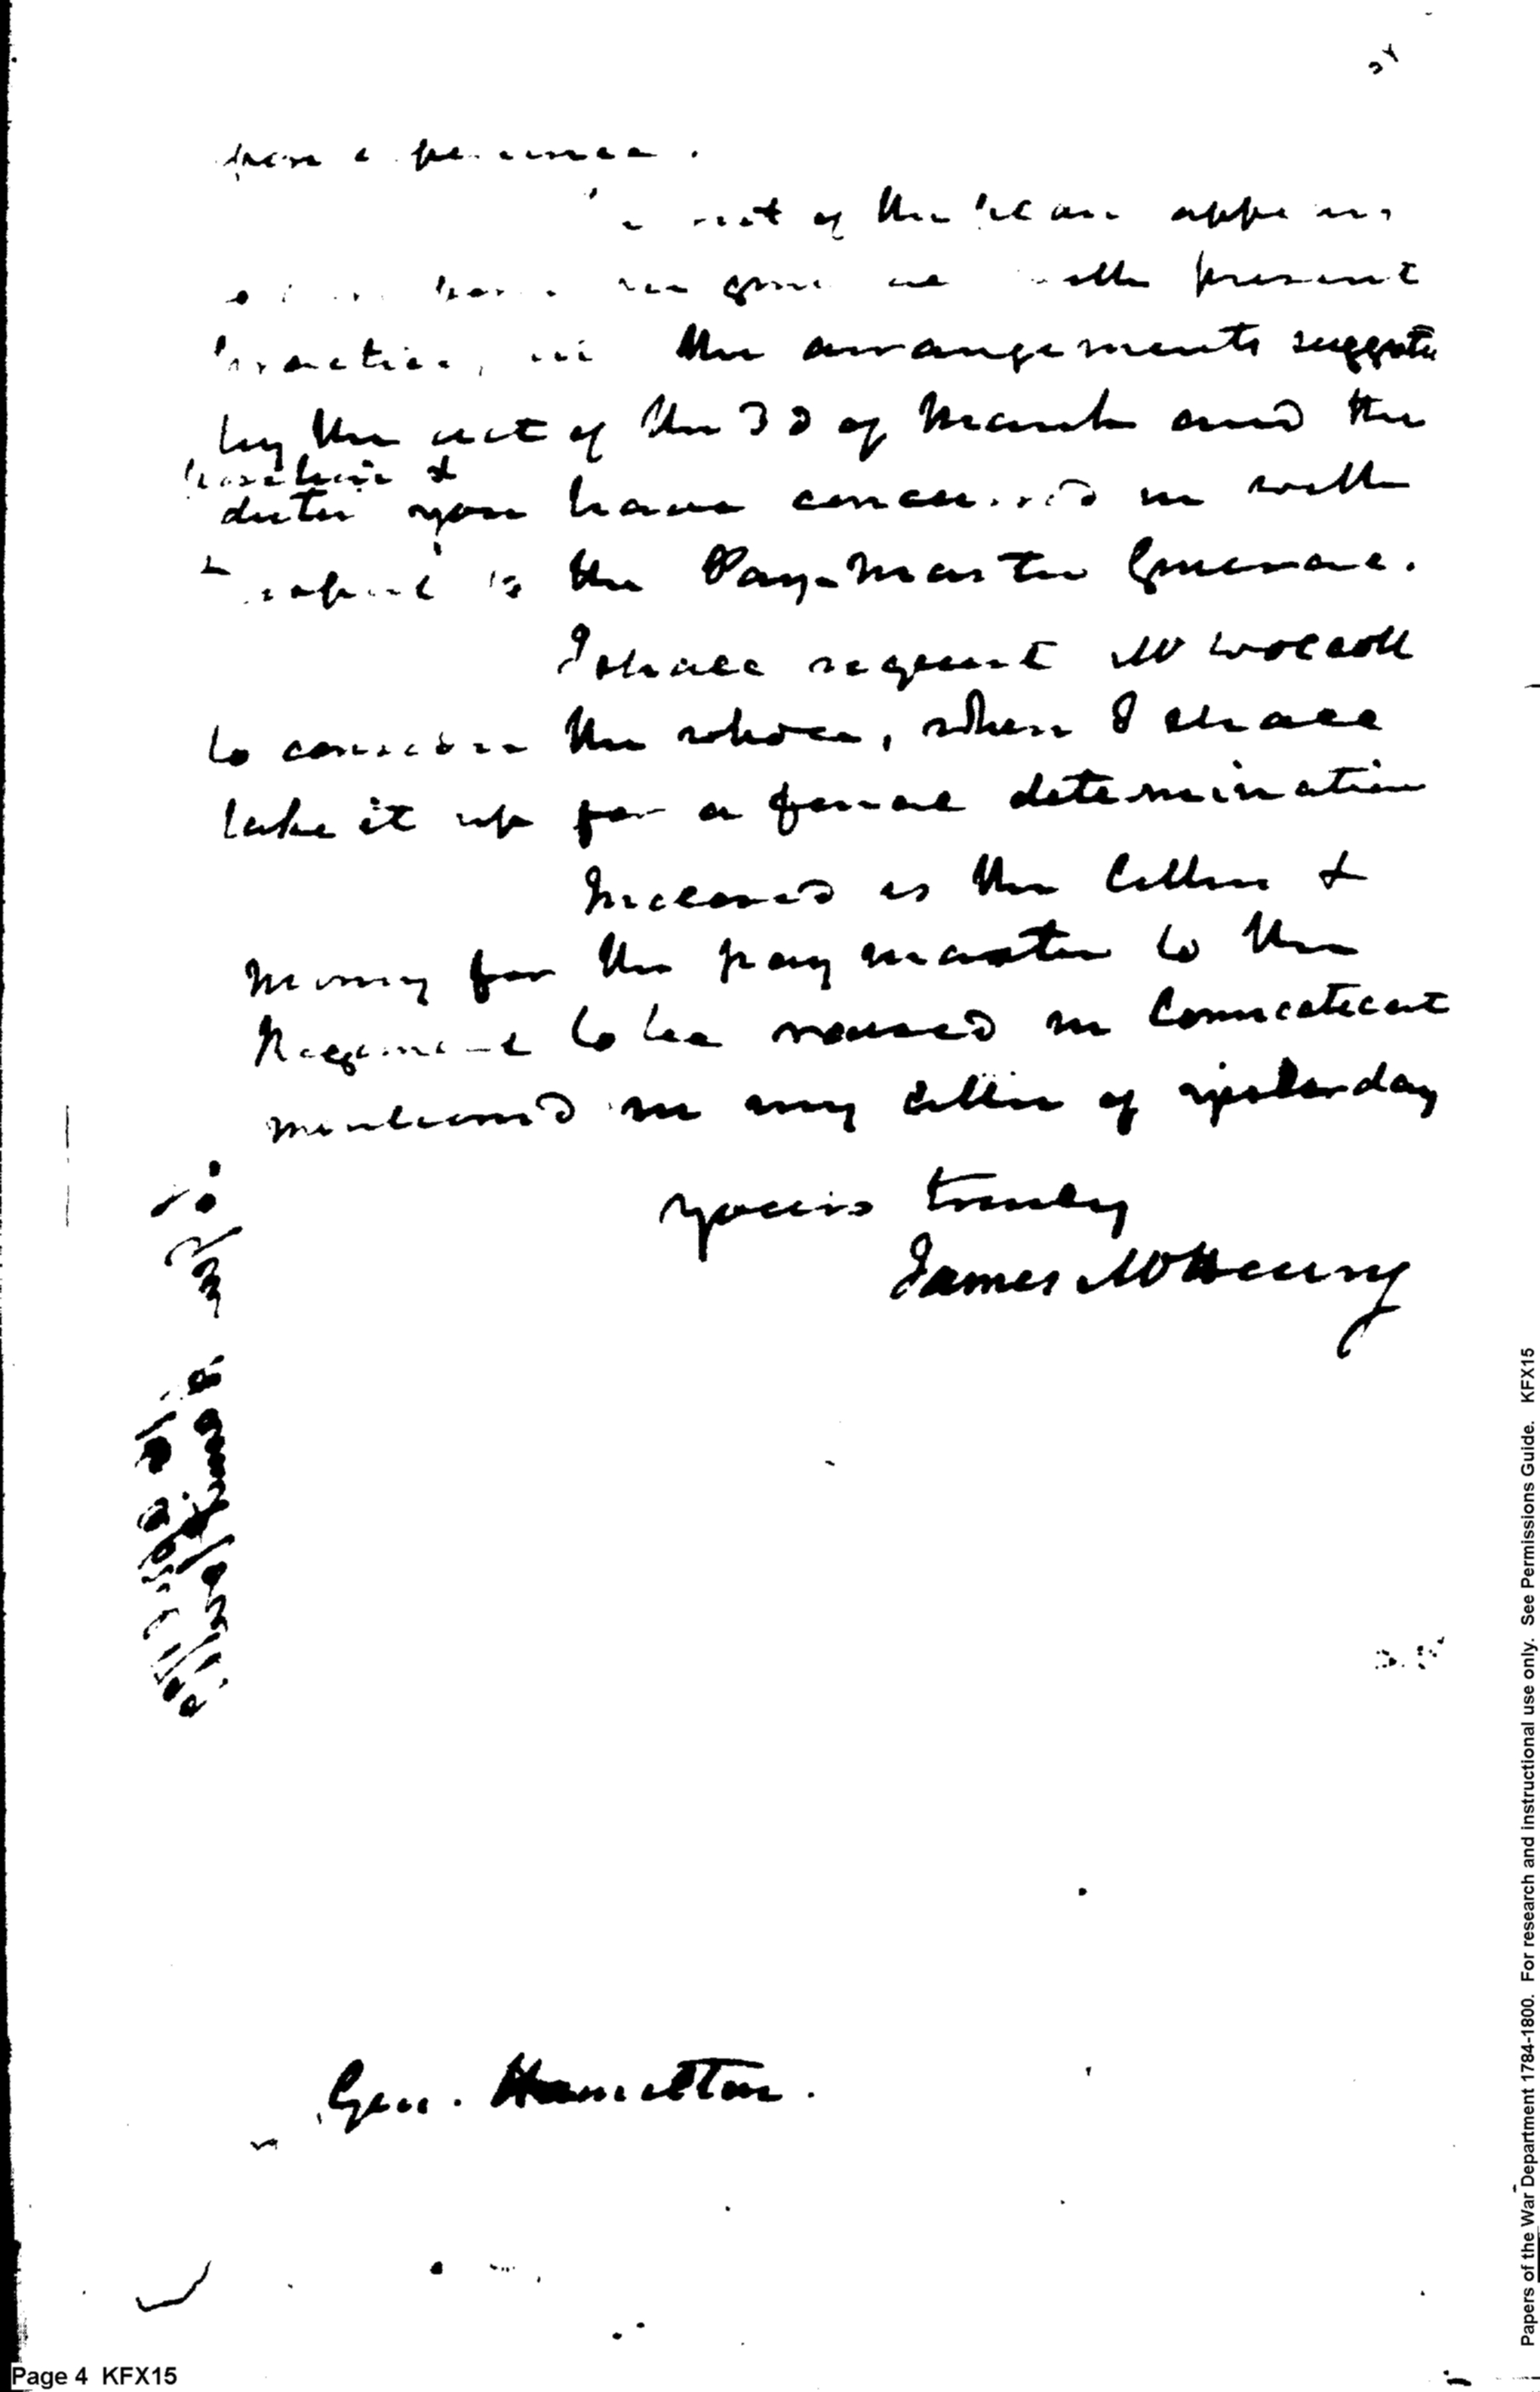 of the plan appears
present
practice, in the arrangements suggested
by the act of the 3d of March and the
position &
duties you have in with
respect to the Pay-Master General.
I shall request Mr Wolcott
to consider the whole, when I shall
take it up for a final determination
Inclosed is the letter &
money for the pay master to the
Regiment to be raised in Connecticut
mentioned in my letter of yesterday
yours truly
James McHenry
Gen. Hamilton.
Page 4 KFX15
Papers of the War Department 1784-1800. For research and instructional use only. See Permissions Guide. KFX15